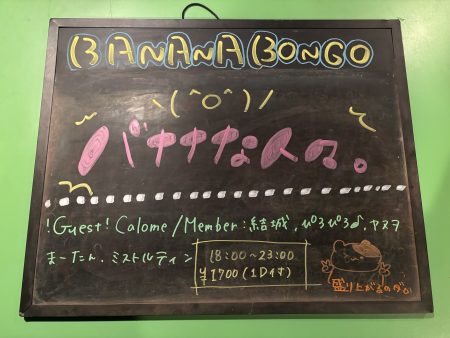 BANANA BONGO
ヽ(^o^)/
バナナナな人の。
!Guest! Calome/Member:結城,ぴろぴろ♂,ヤヌヲ
まーたん.ミストルティン
18:00~23:00
¥1700(1D付)
盛り上がるのダ。